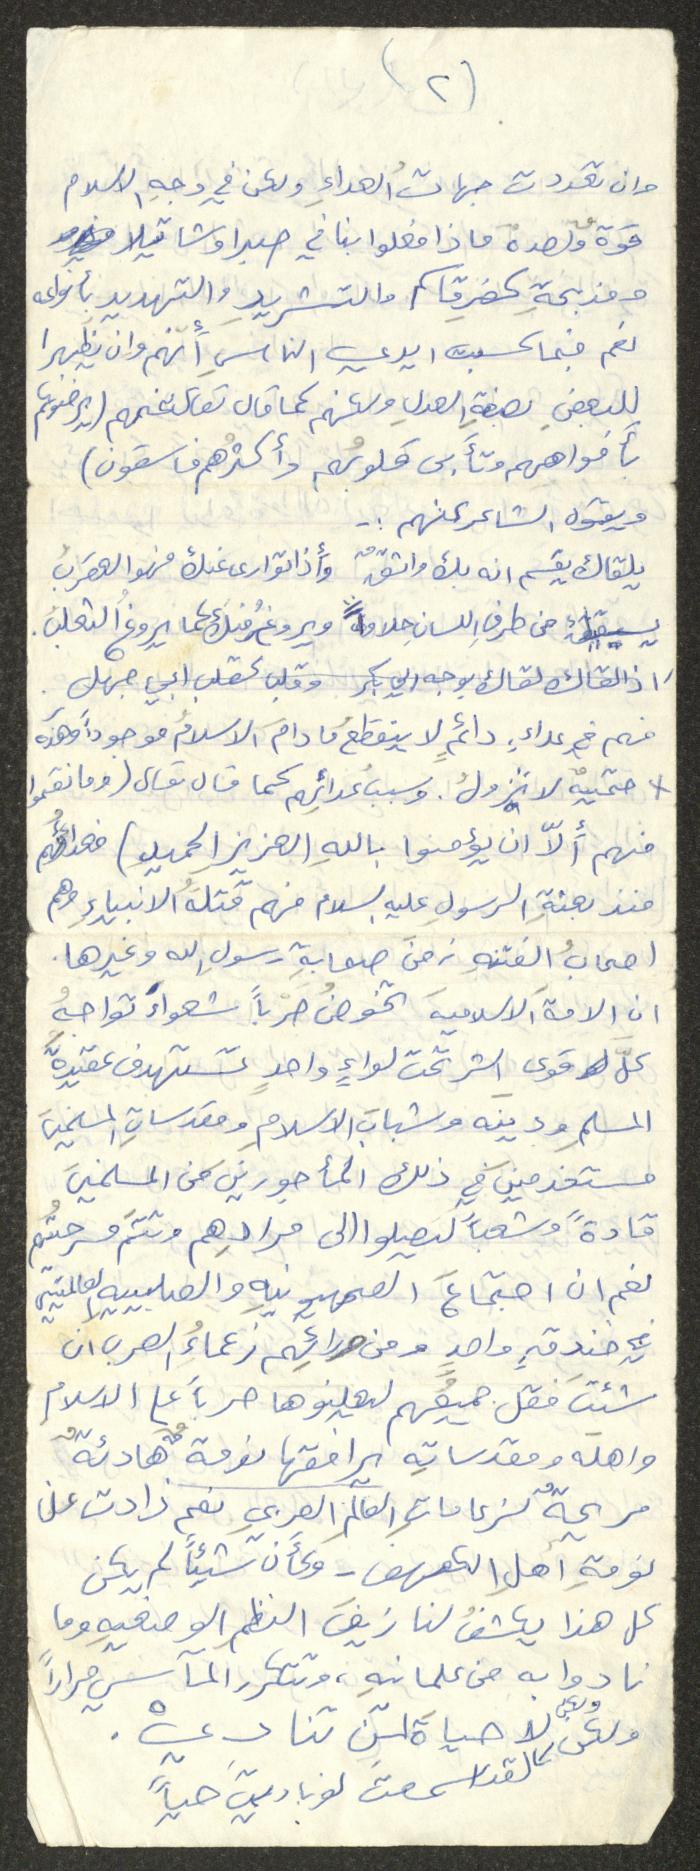 (٢)
وان تعددت جهات العداء ولكن في وجه الاسلام
قوة واحدة ماذا فعلوا بنا في صبرا وشاتيلا
ومذبحة كفرقاسم والتشريد والتهديد بأنواعه
نعم فبما كسبت ايدي الناس أنهم وان يظهروا
للبعض بصفة العدل ولكنهم كما قال تعالى عنهم (يرضونكم
بأفواههم وتأبى قلوبهم وأكثرهم فاسقون)
ويقول الشاعر عنهم :-
يلقاك يقسم انه بك واثقٌ وأذا توارى عنك فهو العقربُ
يسقيك من طرف اللسان حلاوةً ويروغ منك كما يروغ الثعلب.
اذا لقاك لقاك بوجه ابي بكر وقلب كقلب ابي جهل.
فهم في عداءٍ دائمٍ لا ينقطع ما دام الاسلام موجوداً وهذه
حتميةٌ لا تزولُ. وسبب عدائهم كما قال تعالى (وما نقموا
منهم ألاّ ان يؤمنوا بالله العزيز الحميد) فعدائهم
منذ بعثة الرسول عليه السلام فهم قتلة الانبياء وهم
اصحاب الفتنه زمن صحابة رسول الله وغيرها.
ان الامة الاسلامية تخوض حرباً شعواء تواجه
كلّ قوى الشر تحت لواءٍ واحدٍ تستهدف عقيدة
المسلم ودينه وشباب الاسلام ومقدسات المسلمين
مستخدمين في ذلك المأجورين من المسلمين
قادةً وشعباً ليصلوا الى مرادهم وتتم فرحتهم
نعم ان اجتماع الصهيونيه والصليبيه العالميتين
في خندقٍ واحدٍ ومن ورائهم زعماءُ العرب ان
شئت فقل جميعهم ليعلنوها حرباً على الاسلام
واهله ومقدساته يرافقها نومةٌ هادئةٌ
مريحةٌ لزعامات العالم العربي نعم زادت على
نومة أهل الكهف - وكأن شيئاً لم يكن
كل هذا يكشف لنا زيف النظم الوضعيه وما
نادوا به من علمانيه، وتتكرر المآسي مراراً
ولكن لا حياة لمن تنادي.
لقد اسمعت لو ناديت حياً ولكن